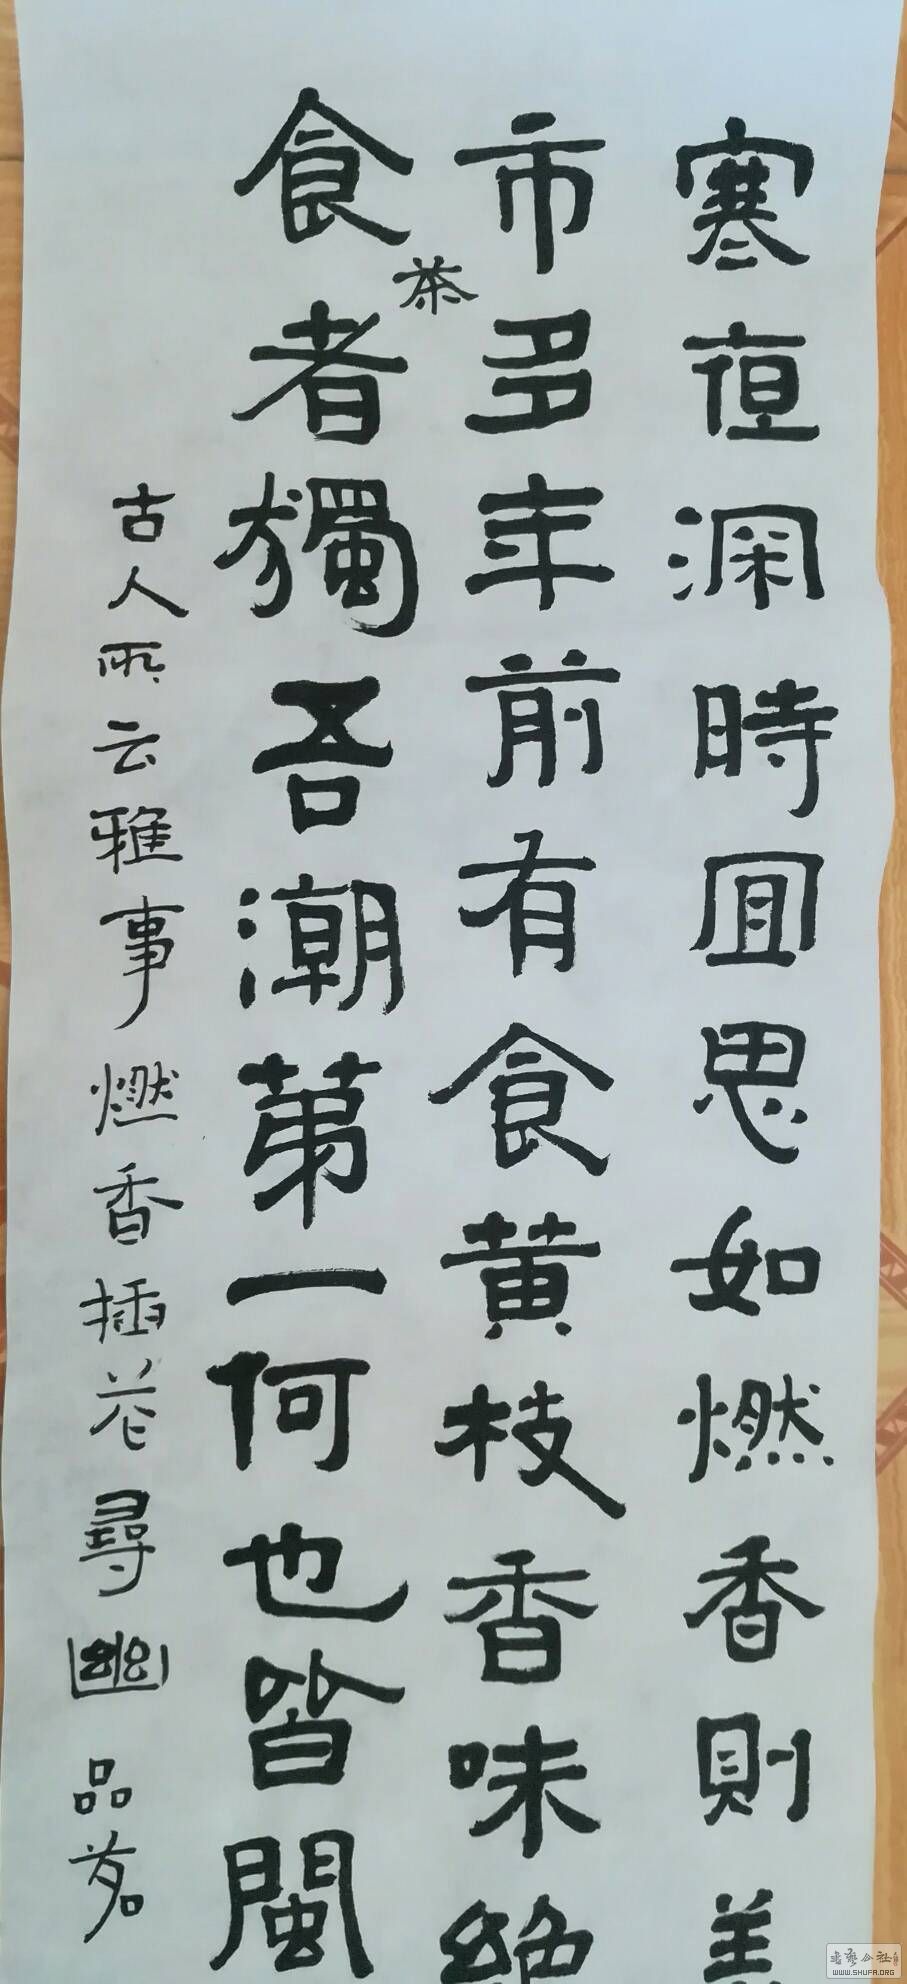 寒夜深時宜思如燃香則美
市多年前有食黄枝香味絶
茶
食者獨吾潮第一何也皆閩
古人所云雅事燃香插花尋幽品茗
WWW.SHUFA.ORG